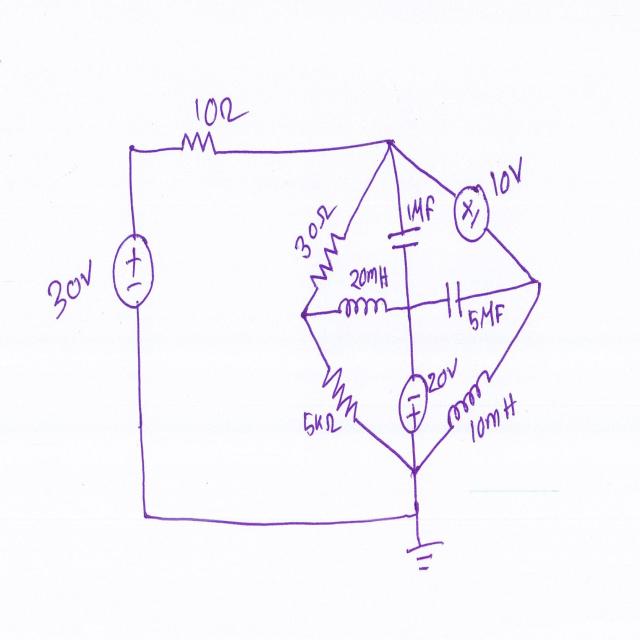 10Ω
10V
30Ω
1MF
+
x,
30V
20mH
5MF
20V
+
5kΩ
10mH